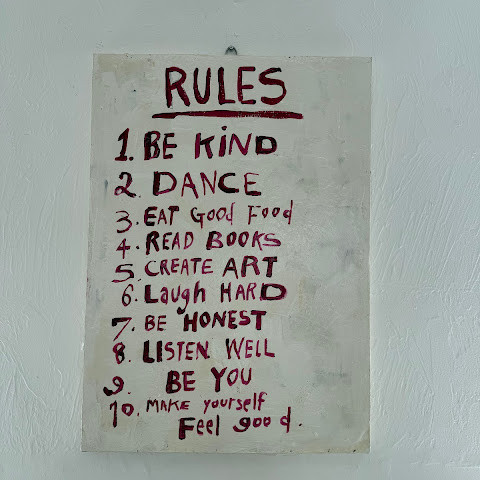 RULES
1. BE KiND
2. DANCE
3. EAT Good Food
4. READ BOOKS
5. CREATE ART
6. Laugh HARD
7. BE HONEST
8. LISTEN WELL
9. BE YOU
10. MAKE yourself
Feel good.